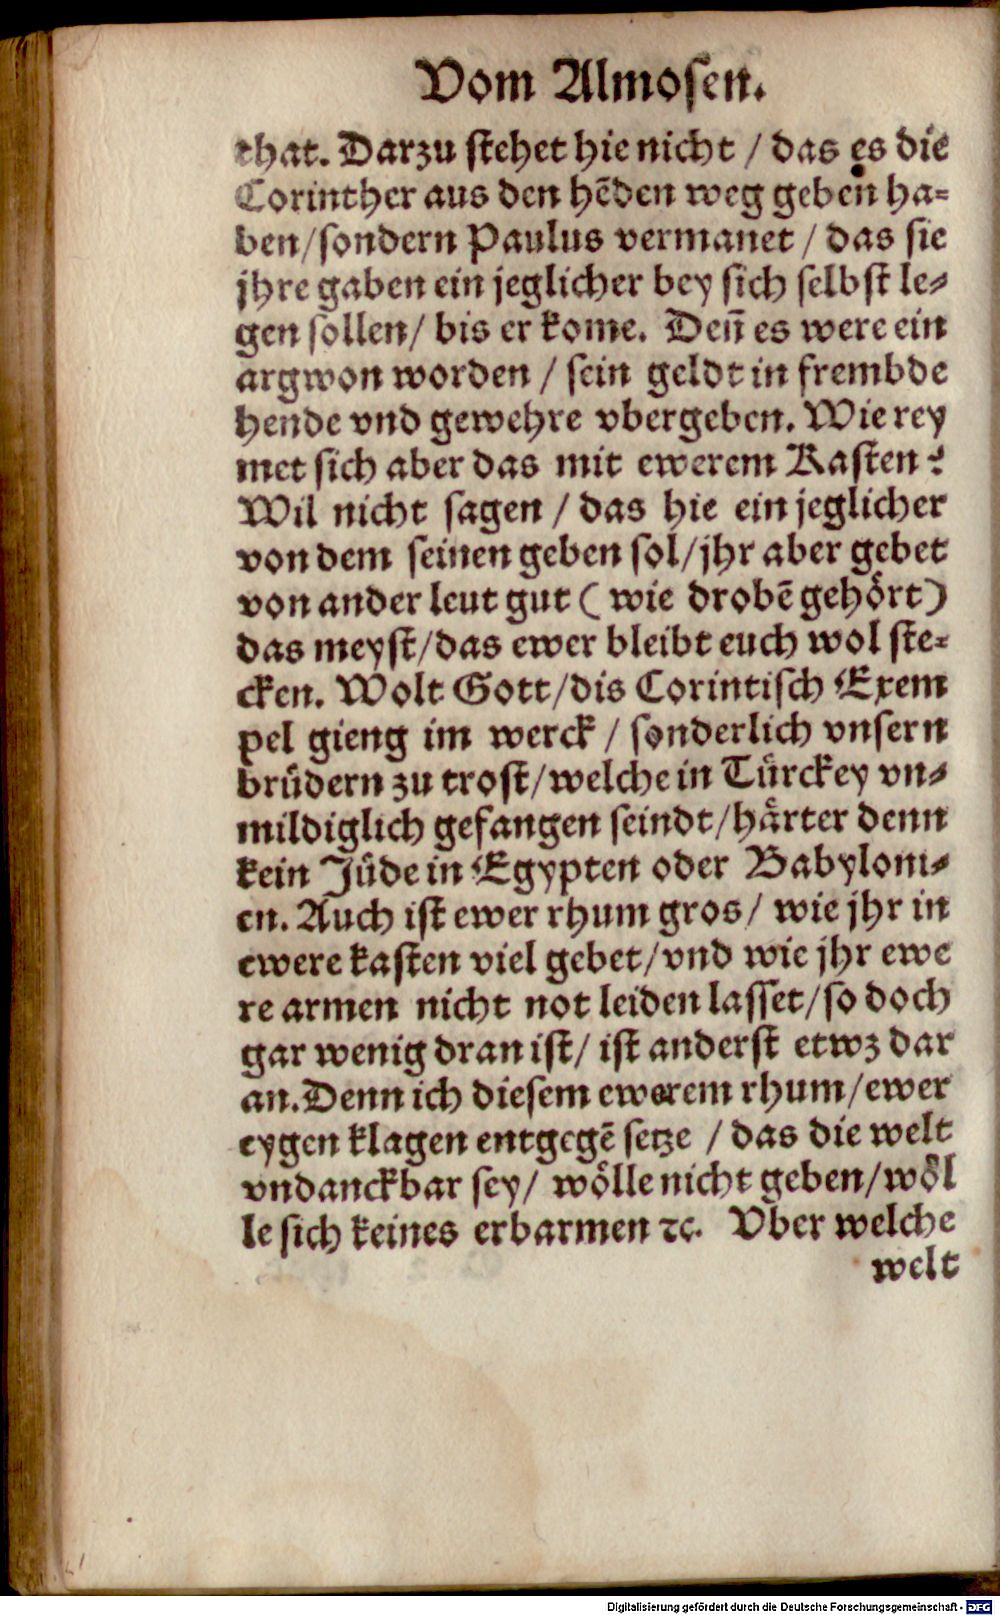 Vom Almosen.
that. Darzu stehet hie nicht / das es die
Corinther aus den hēden weg geben ha=
ben/sondern Paulus vermanet / das sie
jhre gaben ein jeglicher bey sich selbst le=
gen sollen/ bis er kome. Deñ es were ein
argwon worden / sein geldt in frembde
hende vnd gewehre vbergeben. Wie rey
met sich aber das mit ewerem Kasten?
Wil nicht sagen / das hie ein jeglicher
von dem seinen geben sol/jhr aber gebet
von ander leut gut ( wie drobē gehört)
das meyst/das ewer bleibt euch wol ste=
cken. Wolt Gott/dis Corintisch Exem
pel gieng im werck / sonderlich vnsern
brüdern zu trost/welche in Türckey vn=
mildiglich gefangen seindt/härter denn
kein Jüde in Egypten oder Babyloni=
en. Auch ist ewer rhum gros/ wie jhr in
ewere kasten viel gebet/vnd wie jhr ewe
re armen nicht not leiden lasset/so doch
gar wenig dran ist/ ist anderst etwz dar
an. Denn ich diesem ewerem rhum/ewer
eygen klagen entgegē setze / das die welt
vndanckbar sey/ wölle nicht geben/wöl
le sich keines erbarmen ꝛc. Vber welche
welt
Digitalisierung gefördert durch die Deutsche Forschungsgemeinschaft - DFG